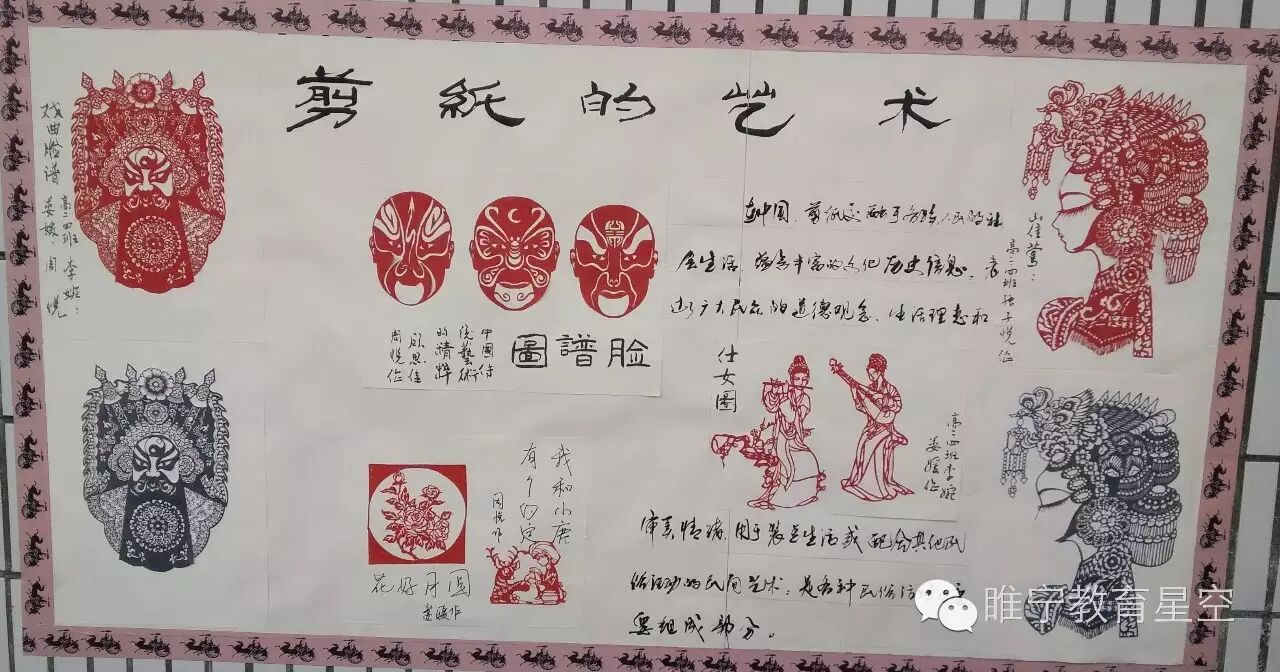 剪紙的艺术
戏曲脸谱
高二四班 李婉：
娄媛：周悦
臉譜圖
中國传
统藝术
的精粹
周悦作
在中国，剪纸交融于各族人民的社
会生活，蕴含丰富的文化历史信息，表
达广大民众的道德观念、生活理想和
审美情趣，用于装点生活或配合其他民
俗活动的民间艺术，是各种民俗
要组成部分。
高二四班张子悦作
仕女圖
高二四班李婉
娄媛作
我和小鹿
有个约定
周悦作
花好月圆
睢宁教育星空